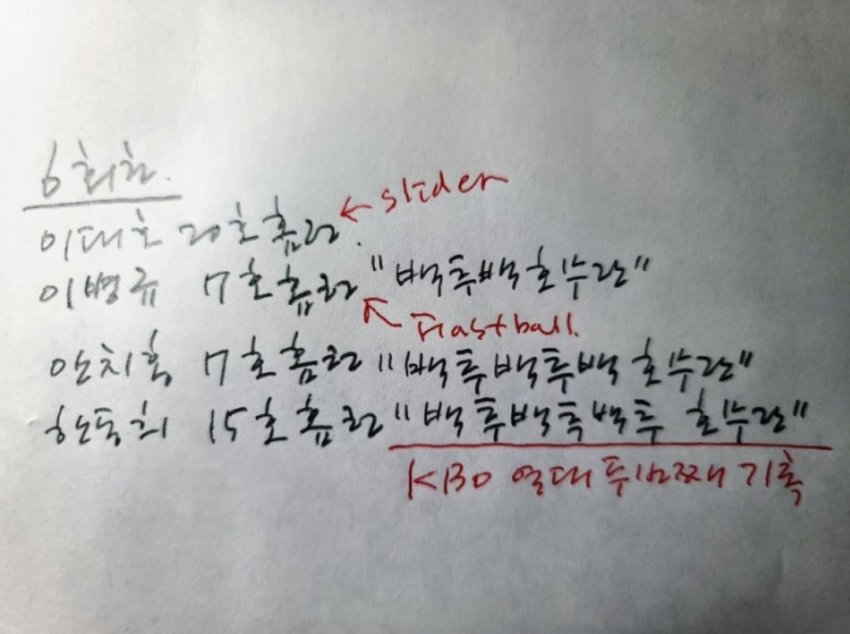 6회차.
이대호 20호홈런. ← slider
이병규 7호홈런 "백투백호수란"
← Fastball.
안치홍 7호홈런 "백투백투백 호수란"
한동희 15호홈런 "백투백투백투 호수란"
KBO 역대 두번째 기록